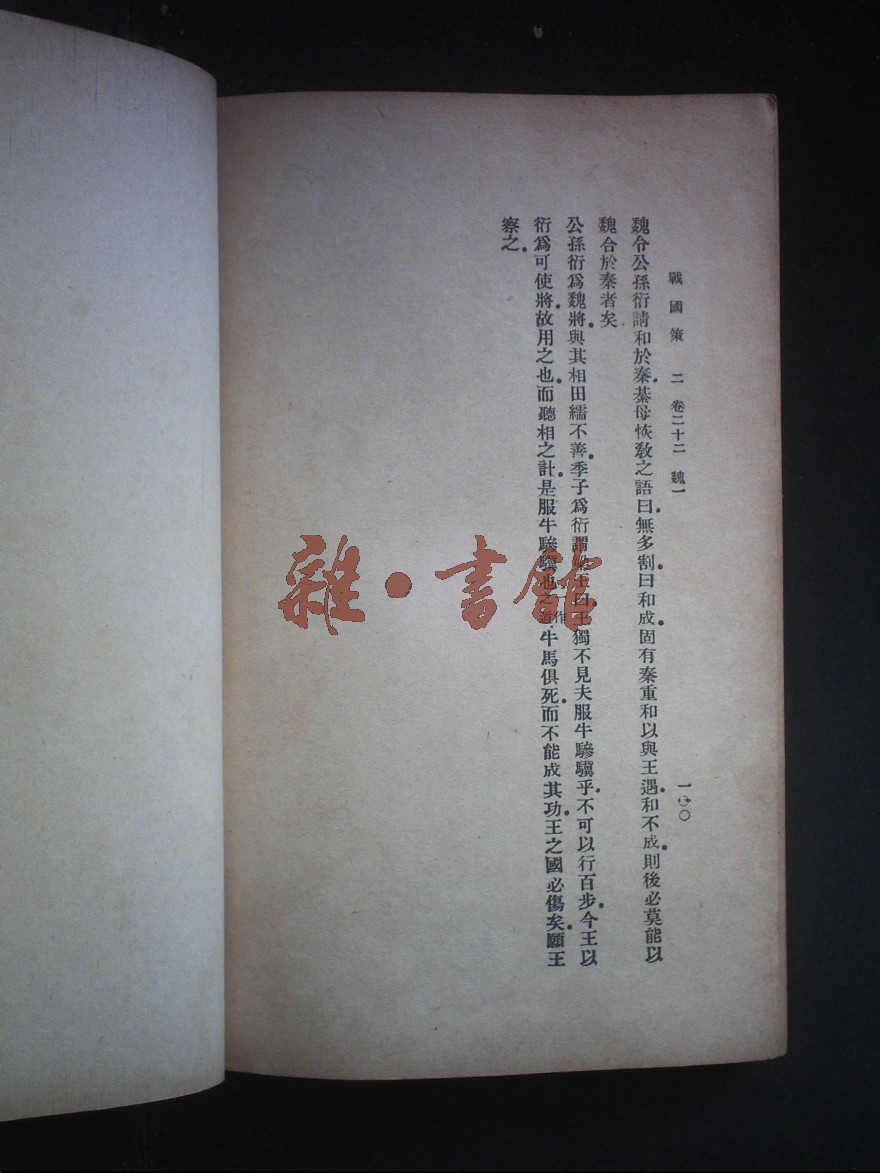 戰國策 二 卷二十二 魏一 一〇〇
魏令公孫衍請和於秦。綦母恢敎之語曰。無多割。曰和成。固有秦重和以與王遇。和不成。則後必莫能以
魏合於秦者矣
公孫衍爲魏將。與其相田繻不善。季子爲衍謂梁王曰。王獨不見夫服牛驂驥乎。不可以行百步。今王以
衍爲可使將。故用之也。而聽相之計。是服牛驂驥也一作之道。牛馬俱死。而不能成其功。王之國必傷矣。願王
察之。
雜·書館